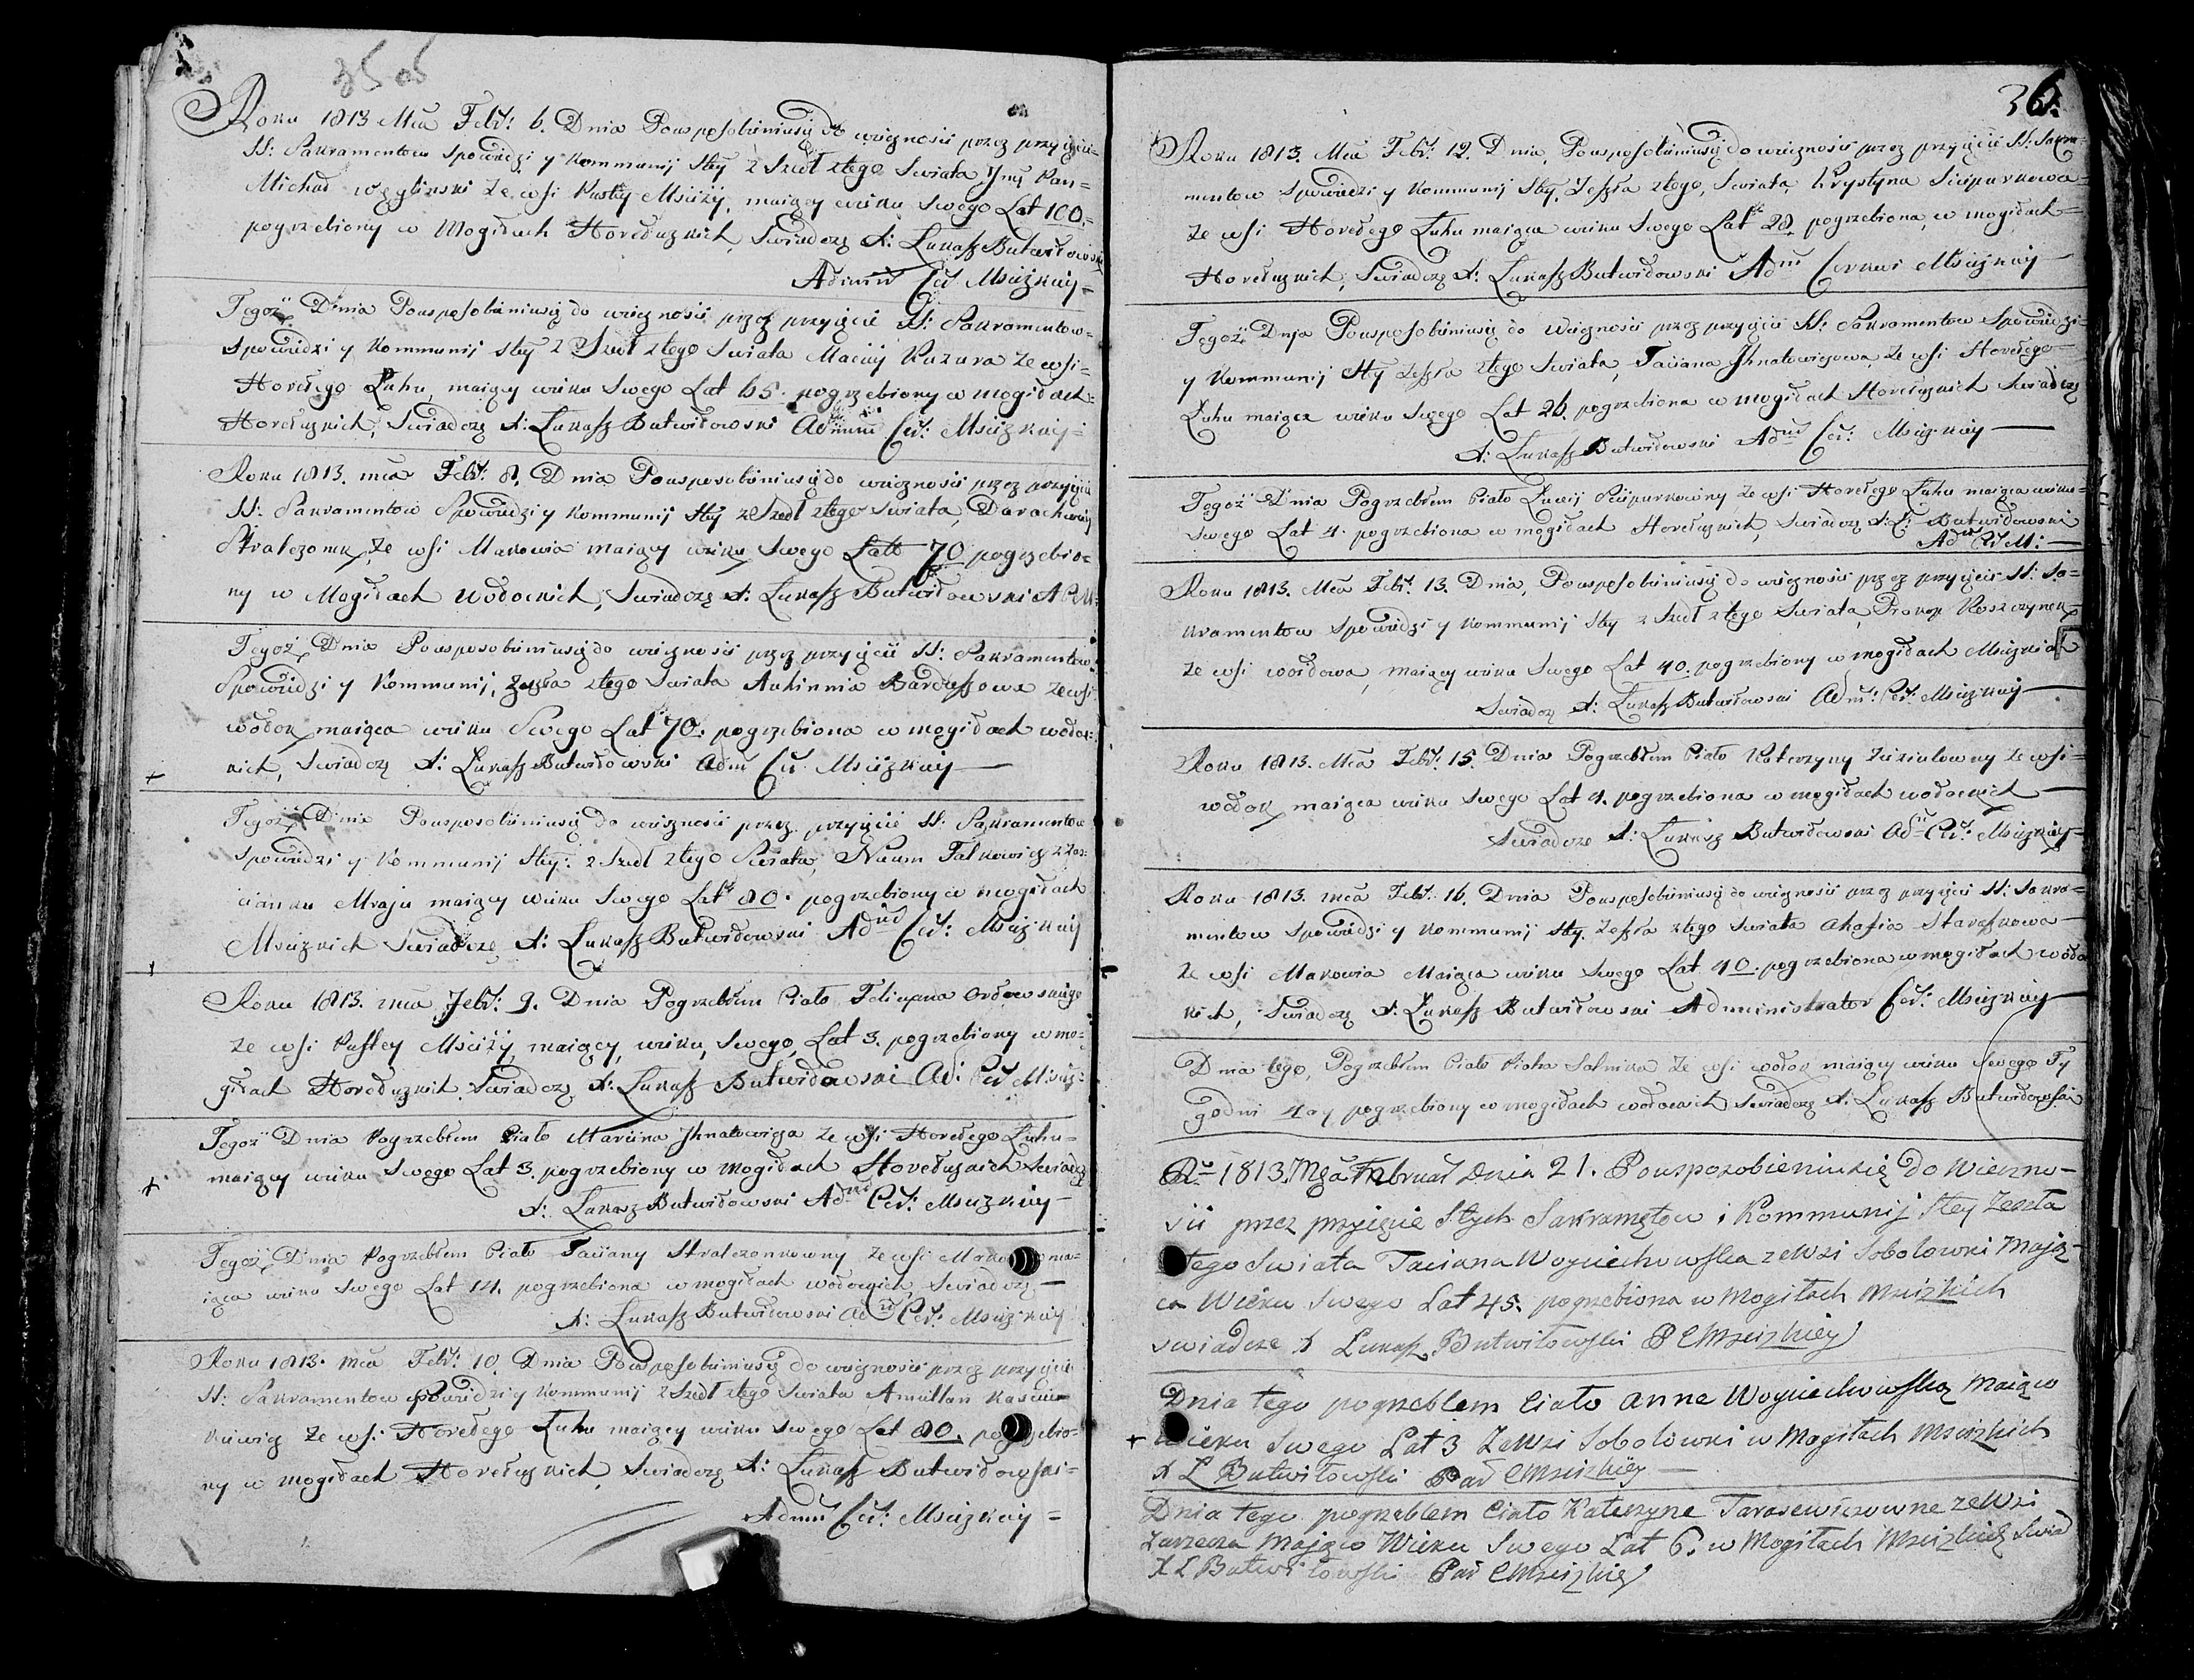 35 об
Roku 1813 Mca Febr: 6. Dnia Pousposobieniusię do wieczności przez przyięcie
SS: Sakramentow Spowiedzi y Kommunij Stey zszedł ztego Swiata Jmć Pan=
Michał Węglinski ze wsi Pustey Msciży, maiący wieku Swego Lat 100.=
pogrzebiony w Mogiłach Horełuzkich Swiadczę X: Łukasz Butwiłowski
Admin Cer Mscizkiey=
Tegoż Dnia Pousposobieniusię do wieczności przez przyięcie SS: Sakramentow=
Spowiedzi y Kommunij Stey zszedł ztego Swiata Maciey Kuzura ze wsi=
Horełego Łuhu, maiący wieku Swego Lat 65. pogrzebiony w mogiłach=
Horełuzkich, Swiadczę X: Łukasz Butwiłowski Admin Cer: Mscizkiey=
Roku 1813. mca Febr: 8. Dnia Pousposobieniusię do wieczności przez przyięcie
SS: Sakramentow Spowiedzi y Kommunij Stey zszedł ztego Swiata,
Stralczonek, ze wsi Makowia maiący wieku Swego Latt 70 pogrzebio=
ny w Mogiłach Wołockich, Swiadczę X: Łukasz Butwiłowski A C M:
Tegoż Dnia Pousposobieniusię do wieczności przez przyięcie SS: Sakramentow
Spowiedzi y Kommunij, zeszła ztego Swiata Auhinnia Barduszowa ze wsi
wołok maiąca wieku Swego Lat 70. pogrzebiona w mogiłach wołoc=
kich, Swiadczę X: Łukasz Butwiłowski Adm Cer Mscizkiey
Tegoż Dnia Pousposobieniusię do wieczności przez przyięcie SS: Sakramentow
Spowiedzi y Kommunij Stey: zszedł ztego Swiata, Naum Falkowicz z Zas=
cianku Mraju maiący wieku Swego Lat 80. pogrzebiony w mogiłach
Mscizkich Swiadczę X: Łukasz Butwiłowski Adm Cer: Mscizkiey
Roku 1813. mca Febr: 9. Dnia Pogrzebłem Ciało Felicyana Orłowskiego
ze wsi Pustey Msciży, maiący, wieku, Swego, Lat 3. pogrzebiony w mo=
giłach Horełuzkich. Swiadczę X: Łukasz Butwiłowski Ad: Cer Msciz:
Tegoż Dnia Pogrzebłem Ciało Marcina Jhnatowicza ze wsi Horełego Łuhu=
maiący wieku Swego Lat 3. pogrzebiony w Mogiłach Horełuzkich Swiadczę
X: Łukasz Butwiłowski Adm Cer: Mscizkiey
Tegoż Dnia Pogrzebłem Ciało Taciany Stralczonkowny ze wsi Mako ma=
iąca wieku Swego Lat 14. pogrzebiona w mogiłach wołockich, Swiadczę
X: Łukasz Butwiłowski Ad Cer: Mscizkiey
Roku 1813. mca Febr: 10. Dnia Pousposobieniusię do wieczności przez przyięcie
SS: Sakramentow Spowiedzi y Kommunij zszedł ztego Swiata Amillan
ze wsi Horełego Łuhu maiący wieku Swego Lat 80. pogrzebio=
ny w mogiłach Horełuzkich, Swiadczę X: Łukasz Butwiłowski=
Admin Cer: Mscizkiey=
36.
Roku 1813. Mca Febr: 12. Dnia, Pousposobieniusię do wieczności przez przyięcie SS: Sakra=
mentow Spowiedzi y Kommunij Stey, Zeszła ztego, Swiata, Krystyna Sciepurkowa=
ze wsi Horełego Łuhu maiąca wieku Swego Lat 28. pogrzebiona, w mogiłach=
Horełuzkich, Swiadczę X: Łukasz Butwiłowski Adm Cerkwi Mscizkiey
Tegoż Dnia Pousposobieniusię do wieczności przez przyięcie SS: Sakramentow Spowiedzi=
y Kommunij Stey zeszła ztego Swiata, Taciana Jhnatowiczowa, ze wsi Horełego=
Łuhu maiąca wieku Swego Lat 26. pogrzebiona w mogiłach Horełuzkich Swiadczę
X: Łukasz Butwiłowski Adm Cer: Mscizkiey
Tegoż Dnia Pogrzebłem Ciało Łucyi Sciepurkowny ze wsi Horełego Łuhu maiąca wieku=
Swego Lat 4. pogrzebiona w mogiłach Horełuzkich, Swiadczę X: Ł: Butwiłowski
Adm Cer M:
Roku 1813. Mca Febr: 13. Dnia, Pousposobieniusię do wieczności przez przyięcie SS: Sa=
kramentow Spowiedzi y Kommunij Stey zszedł ztego Swiata, Prokop Koszczynek
ze wsi wołdowa, maiący wieku Swego Lat 40. pogrzebiony w mogiłach Mscizkich
Swiadczę X: Łukasz Butwiłowski Adm: Cer: Mscizkiey
Roku 1813. Mca Febr: 15. Dnia Pogrzebłem Ciało Katerzyny Ziziulowny ze wsi=
wołok maiąca wieku Swego Lat 4. pogrzebiona w mogiłach wołockich
Swiadcze X: Łukasz Butwiłowski Ad Cer: Mscizkiey
Roku 1813. mca Febr: 16. Dnia Pousposobieniusię do wieczności przez przyięcie SS: Sakra=
mentow Spowiedzi y Kommunij Stey. zeszła ztego Swiata Ahafia Staraszkowa
ze wsi Makowia Maiąca wieku Swego Lat 40. pogrzebiona w mogiłach wołoc
kich, Swiadczę X: Łukasz Butwiłowski Administrator Cer: Mscizkiey
Dnia tego, Pogrzebłem Ciało Piotra Salnika ze wsi wołok maiący wieku Swego Ty
godni 4ry pogrzebiony w mogiłach wołockich Swiadczę X: Łukasz Butwiłowski
Ru 1813. Mca Februar Dnia 21. Pousposobieniusię do wieczno-
ści przez przyięcie Stych Sakramętow i Kommunij Stey Zeszła
ztego Swiata Taciana Woyciechowska zeWsi Sobolowki Mają-
ca Wieku Swego Lat 45. pogrzebiona w Mogiłach Mscizkich
swiadcze X Łukasz Butwiłowski P C Mscizkiey
Dnia tego pogrzeblem Ciało Anne Woyciechowską Maiąco
wieku Swego Lat 3 ZeWsi Sobolowki w Mogiłach Mscizkich
X Ł Butwiłowski Par C Mscizkiey
Dnia tego pogrzeblem Ciało Katerzyne Tarasewiczowne zeWsi
Zarzecza Mająco Wieku Swego Lat 6. w Mogiłach Mscizkich Swiad
X Ł Butwiłowski Par C Mscizkiey